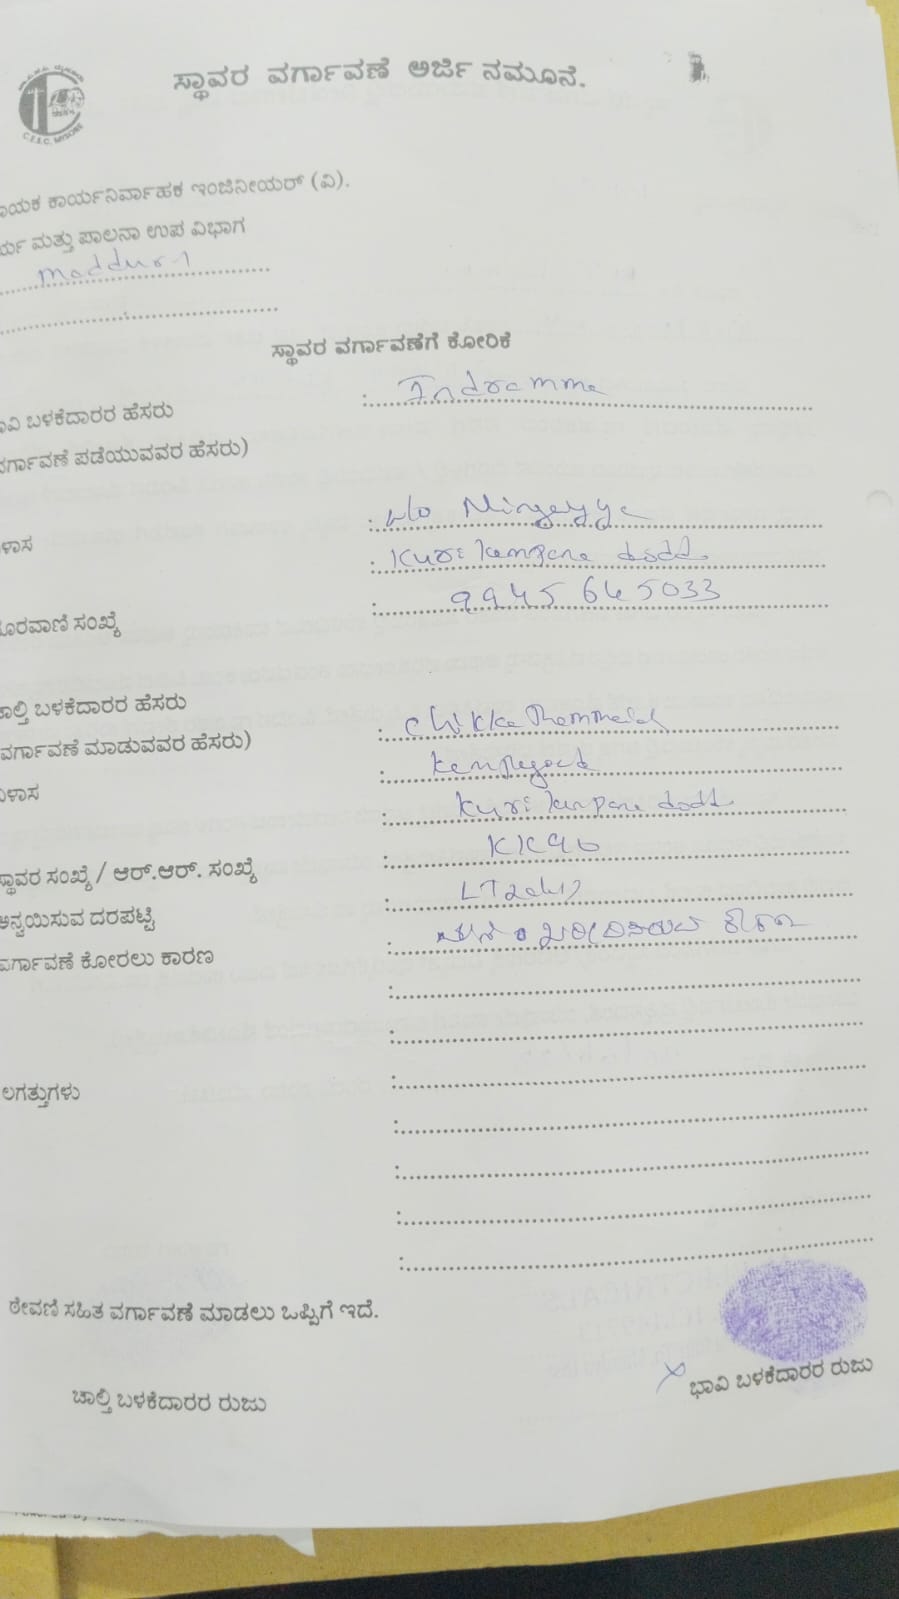 ಸ್ಥಾವರ ವರ್ಗಾವಣೆ ಅರ್ಜಿ ನಮೂನೆ.
C.E.S.C, MYSORE
ಾಯಕ ಕಾರ್ಯನಿರ್ವಾಹಕ ಇಂಜಿನೀಯರ್ (ವಿ).
ರ್ಯ ಮತ್ತು ಪಾಲನಾ ಉಪ ವಿಭಾಗ
Maddur-1
ಸ್ಥಾವರ ವರ್ಗಾವಣೆಗೆ ಕೋರಿಕೆ
ಾವಿ ಬಳಕೆದಾರರ ಹೆಸರು : Indramma
ವರ್ಗಾವಣೆ ಪಡೆಯುವವರ ಹೆಸರು)
ಳಾಸ : w/o Ningayya
: Kuri kempana dodd
ೂರವಾಣಿ ಸಂಖ್ಯೆ : 9945645033
ಚಾಲ್ತಿ ಬಳಕೆದಾರರ ಹೆಸರು
ವರ್ಗಾವಣೆ ಮಾಡುವವರ ಹೆಸರು) : Chikka
ವಿಳಾಸ : Kempegowda
: Kuri kempana dodd
ಸ್ಥಾವರ ಸಂಖ್ಯೆ / ಆರ್.ಆರ್. ಸಂಖ್ಯೆ : KK96
ಅನ್ವಯಿಸುವ ದರಪಟ್ಟಿ :
ವರ್ಗಾವಣೆ ಕೋರಲು ಕಾರಣ : ಖರೀದಿಸಿರುವ
ಲಗತ್ತುಗಳು
ಠೇವಣಿ ಸಹಿತ ವರ್ಗಾವಣೆ ಮಾಡಲು ಒಪ್ಪಿಗೆ ಇದೆ.
ಚಾಲ್ತಿ ಬಳಕೆದಾರರ ರುಜು
ಭಾವಿ ಬಳಕೆದಾರರ ರುಜು